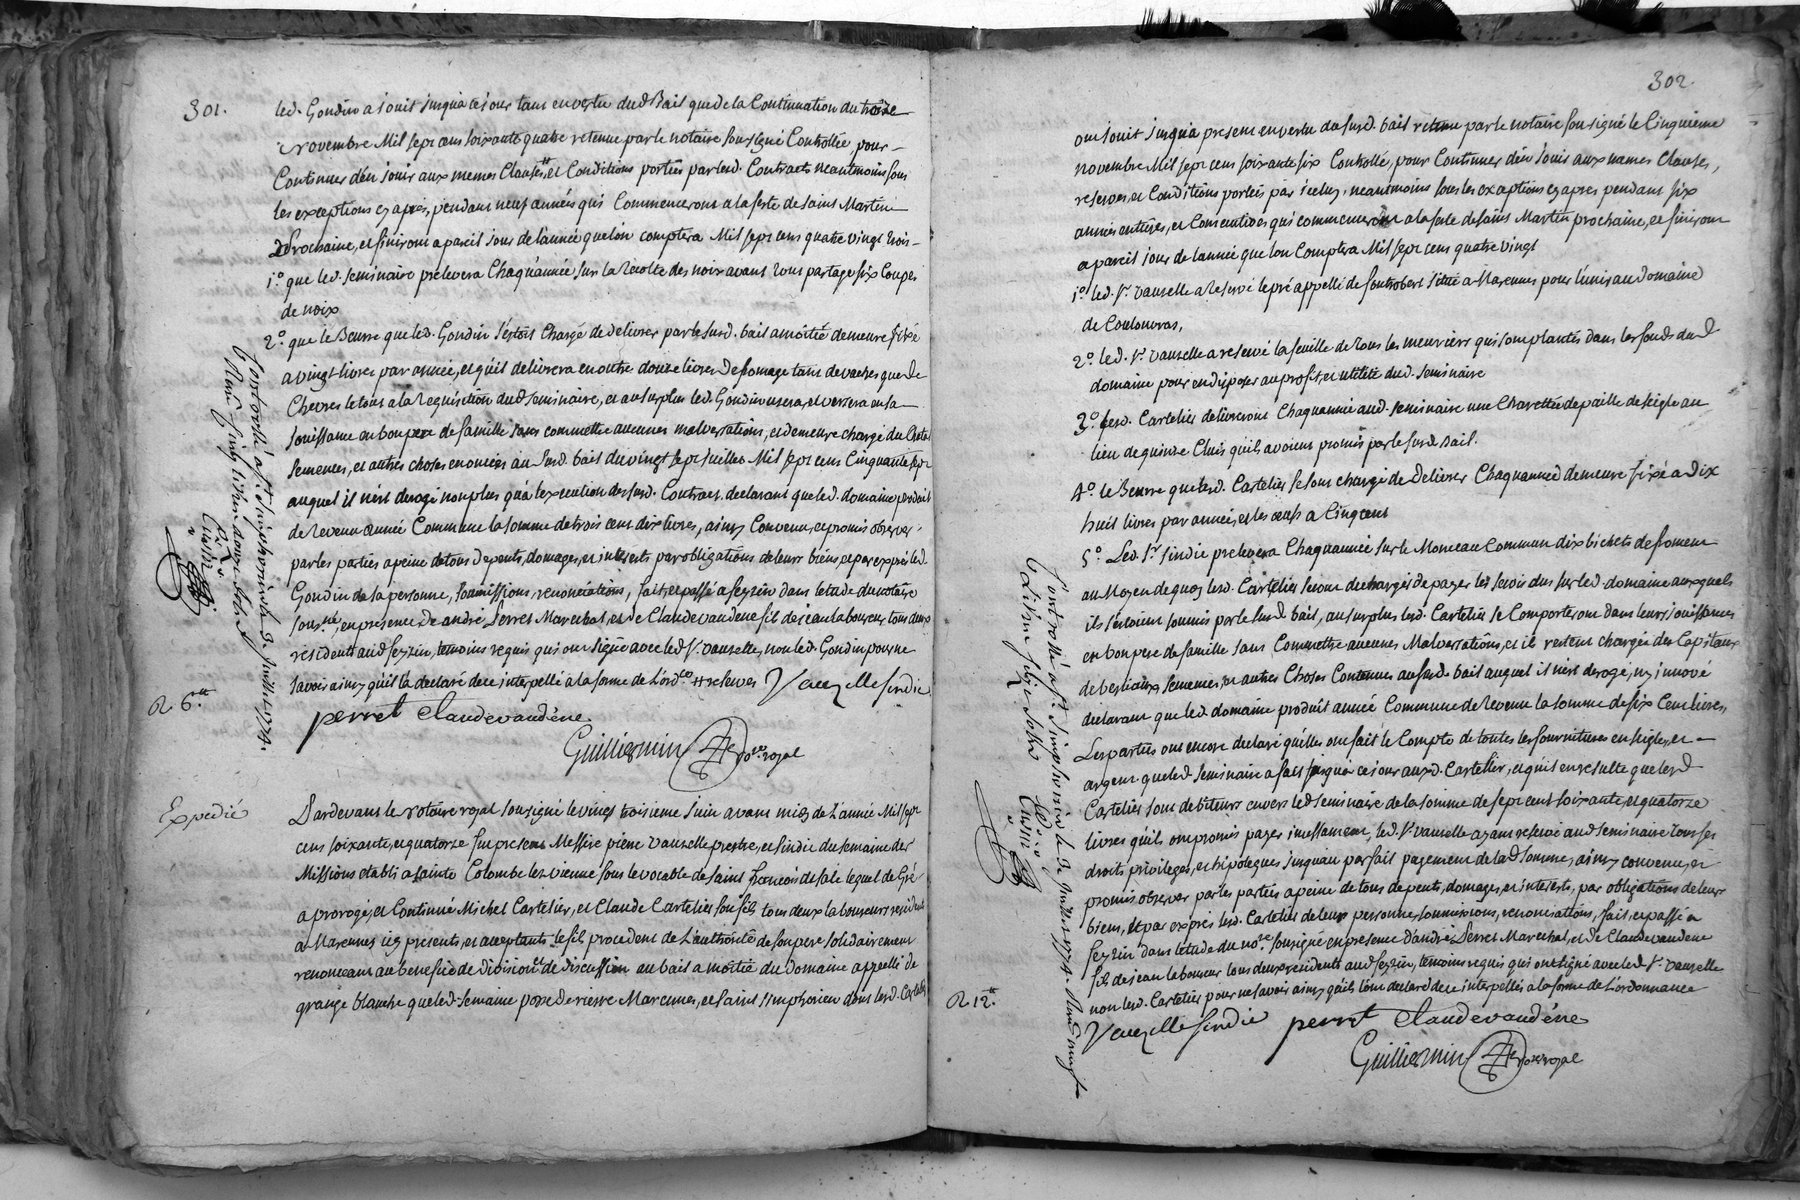 301.
led. Gondin a jouit jusqua ce jour tant en vertu dud Bail que de la Continuation du treize
Novembre Mil sept cens soixante quatre retenue par le notaire soussigné Controllée, pour
Continuer d'en jouir aux memes Clauses, et Conditions portées par led. Contracts neantmoins sous
les exceptions cy apres, pendant neuf années qui Commenceront a la feste de saint Martin
prochaine, et finiront a pareil jour de l'année que lon comptera Mil sept cens quatre vingt trois
1°. que led. seminaire prelevera Chaqu'année sur la recolte des noix avant tous partage six Coupes
de noix
2°. que le Beurre que led. Gondin s'etoit Chargé de delivrer par le susd. bail a moitié demeure fixé
a vingt livres par année, et qu'il delivrera en outre douze livres de fromage tant de vaches que de
Chevres le tout a la requisition dud seminaire, et au surplus led. Gondin usera, et versera en sa
jouissance en bon pere de famille sans commettre aucunes malversations, et demeure chargé du
semences, et autres choses enoncées au susd. bail du vingt sept juillet Mil sept cens Cinquante sept
auquel il n'est derogé non plus qu'a l'execution desusd. Contract. declarant que led. domaine produit
de revenu année Commune la somme de trois cent dix livres, ainsy Convenu, et promis observer
par les parties a peine de tous depents, domages, et interets par obligations de leurs biens et par exprés led.
Gondin de sa personne, soumissions, renonciations, fait, et passé a feyzin dans letude du notaire
soussigné, en presence de andré Perret Marechal, et de Claude vaudene fils de jean laboureur tous deux
residents aud feyzin, temoins requis qui ont signé avec led Sr. vauzelle, non led. Gondin pour ne
savoir ainsy qu'il la declaré de ce interpellé a la forme de l'ordce reserves Vauzelle sindic
R 6.tt
perret Claudevaudéne
Guilliermin no.re royal
Controllé a St. Simphorien le 3. Juillet 1774.
Expedié
Pardevant le Notaire royal soussigné le vingt troisieme juin avant midy de l'année Mil sept
cens soixante, et quatorze fut present Messire piere vauzelle prestre, et sindic du semainre des
Missions etabli a sainte Colombe lez vienne sous le vocable de saint françois de sale lequel de Gré
a prorogé, et Continué Michel Cartelier, et Claude Cartelier son fils tous deux laboureurs residents
a Marennes icy presents, et acceptants le fils procedent de l'authorité de son pere solidairement
renonceant au benefice de division, et de discussion au bail a moitié du domaine appellé de
grange blanche que led. semainre possede riere Marennes, et saint simphorien dont lesd. Cartelier
302
ont jouit jusqua present en vertu du susd. bail retenu par le notaire soussigné le Cinquieme
novembre Mil sept cens soixante six Controllé, pour Continuer d'en jouir aux memes Clauses,
reserves, et Conditions portées par icelui, neantmoins sous les exceptions cy apres pendant six
années entieres, et Consecutives qui commenceront a la feste de saint Martin prochaine, et finiront
a pareil jour de lannée que lon Comptera Mil sept cens quatre vingt
1°. led. Sr. vauzelle a reservé le pré appellé de fontrobert situé a Marennes pour l'unir au domaine
de Coulouvras,
2°. led. Sr. vauzelle a reservé la feuille de tous les meuriers qui sont plantés dans les fonds dud
domaine pour en disposer au profit, et utilité dud. seminaire
3°. lesd. Cartelier delivreront Chaquannée aud. seminaire une Charettée de paille de seigle au
lieu de quinze Cluis qu'ils avoient promis par le susd Bail.
4°. le Beurre que lesd. Cartelier se sont chargé de delivrer Chaquannée demeure fixé a dix
huit livres par année, et les oeufs a Cinq cent
5°. Led. Sr. sindic prelevera Chaquannée sur le Monceau Commun dix bichets de froment
au Moyen de quoy lesd. Cartelier seront dechargés de payer les servis dus sur led. domaine auxquels
ils s'etoient soumis par le susd bail, au surplus lesd. Cartelier se Comporteront dans leurs jouissances
en bon pere de famille sans Commettre aucunes Malversations, et il restent chargés des Capitaux
de bestiaux, semences, et autres Choses Contenues au susd. bail auquel il n'est derogé, ny innové
declarant que led. domaine produit année Commune de revenu la somme de six Cent livres,
Les parties ont encore declaré qu'elles ont fait le Compte de toutes les fournitures en seigle, et
argent que led. seminaire a fait jusqua ce jour auxd. Cartelier, et qu'il en resulte que lesd
Cartelier sont debiteurs envers led seminaire de la somme de sept cent soixante, et quatorze
livres qu'ils ont promis payer incessament, led. Sr. vauzelle ayant reservé aud seminaire tous ses
droits, privileges, et hipoteques jusquau parfait payement de lad somme, ainsy convenu, et
promis observer par les parties a peine de tous depents, domages, et interets, par obligations de leurs
biens, et par exprés lesd. Cartelier de leurs personnes soumissions, renonciations, fait, et passé a
feyzin dans letude du no.re soussigné en presence d'andré Perret Marechal, et de Claude vaudene
fils de jean laboureur tous deux residents aud feyzin, temoins requis qui ont signé avec led Sr. vauzelle
non lesd. Cartelier pour ne savoir ainsy qu'ils l'ont declaré de ce interpellés a la forme de l'ordonnance
R 12.tt
Vauzelle sindic perret Claudevaudéne
Guilliermin no.re royal
Controllé a St. Simphorien le 3. Juillet 1774.